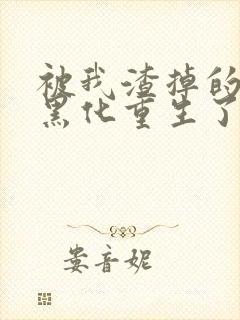 被我渣掉的
黑化重生了
娄音妮